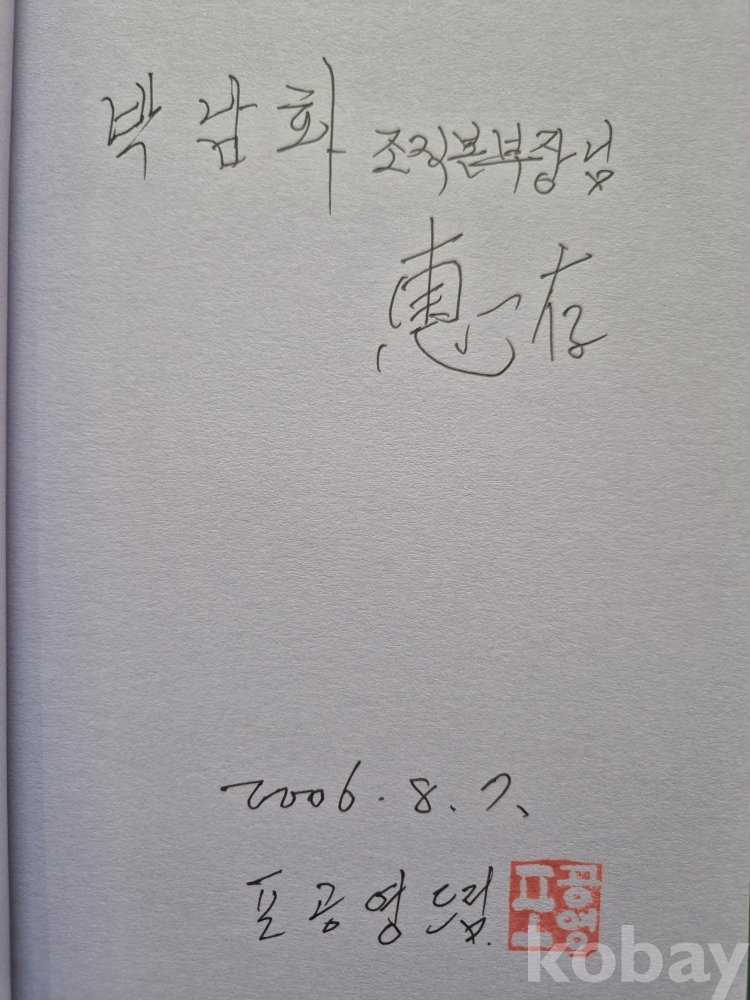 박남화 조직본부장님
惠存
2006. 8. 7.
표공영 드림.
kobay